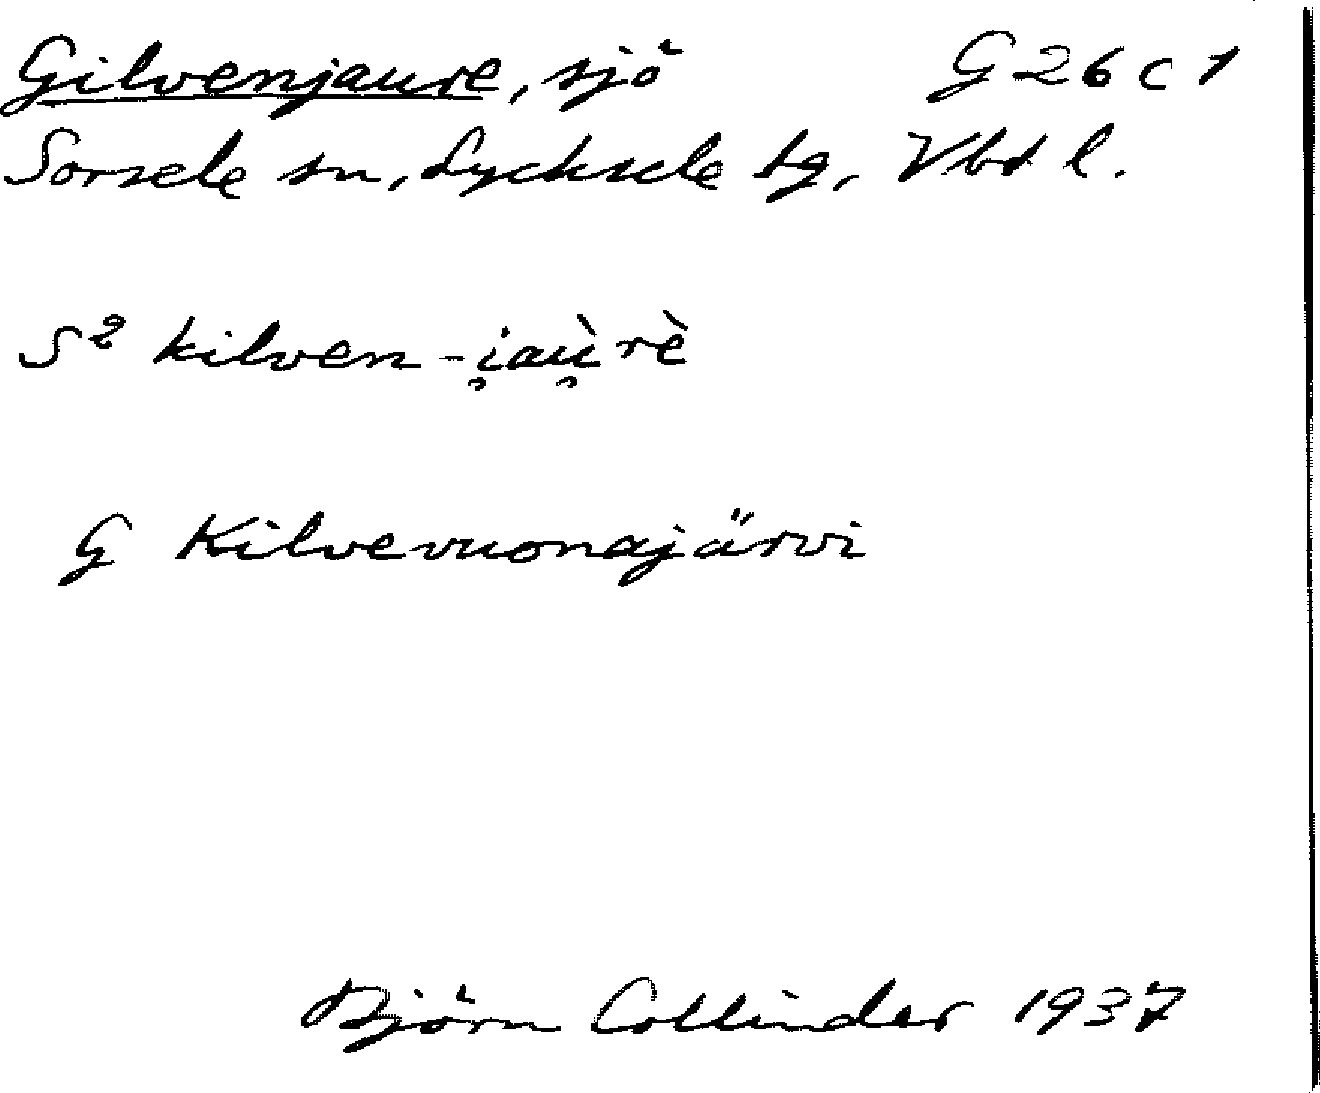 Gilvenjaure, sjö G 26 c 1
Sorsele sn, Lycksele tg, Vbt l.
S² kilven-i̯aù̯rè
G Kilvevuonajärvi
Björn Collinder 1937